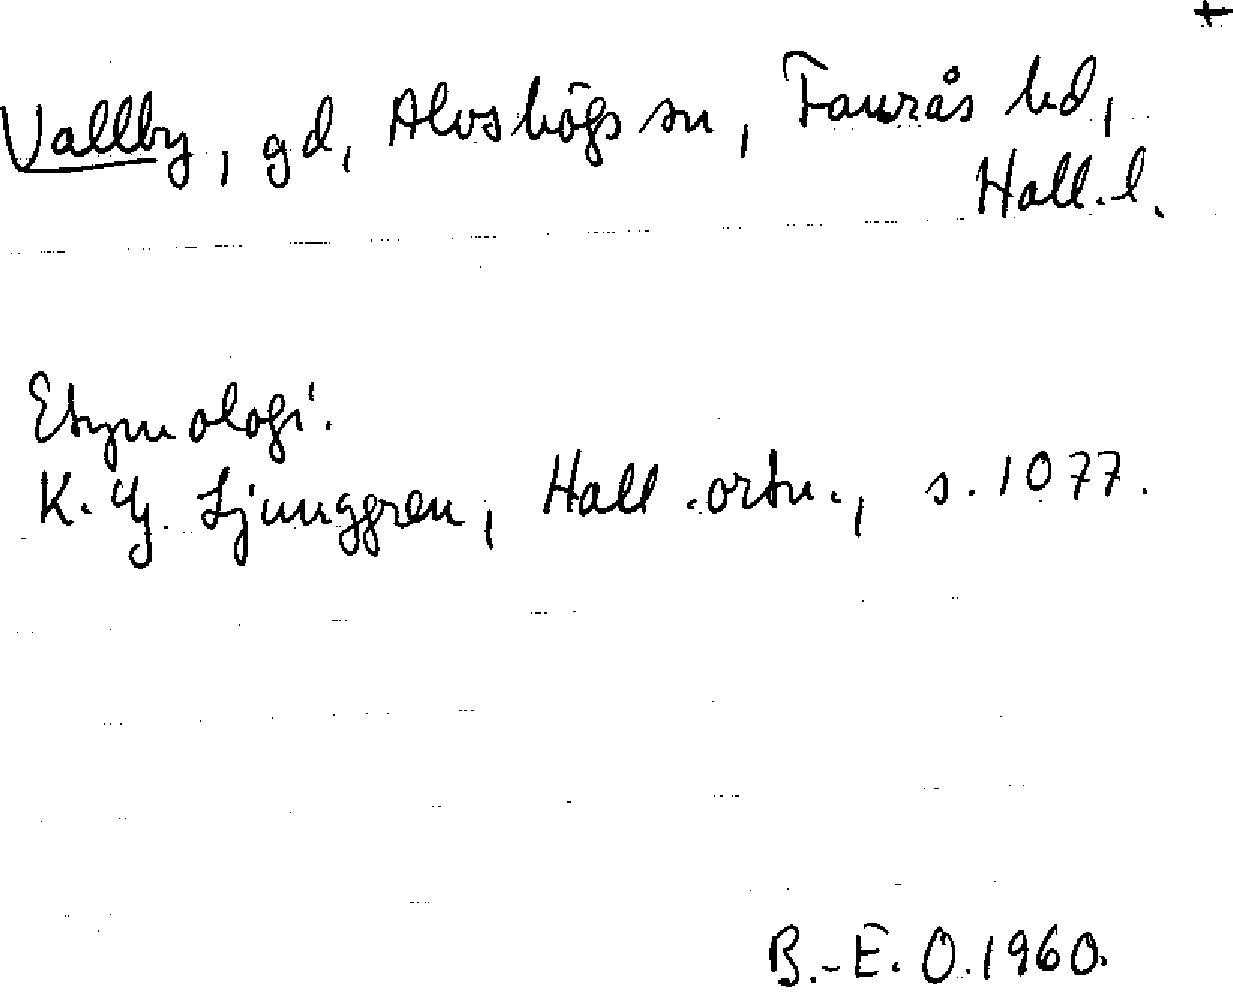 +
Vallby, gd, Alvshögs sn, Faurås hd,
Hall. l.
Etymologi.
K. G. Ljunggren, Hall. ortn., s. 1077.
B.-E. O. 1960.